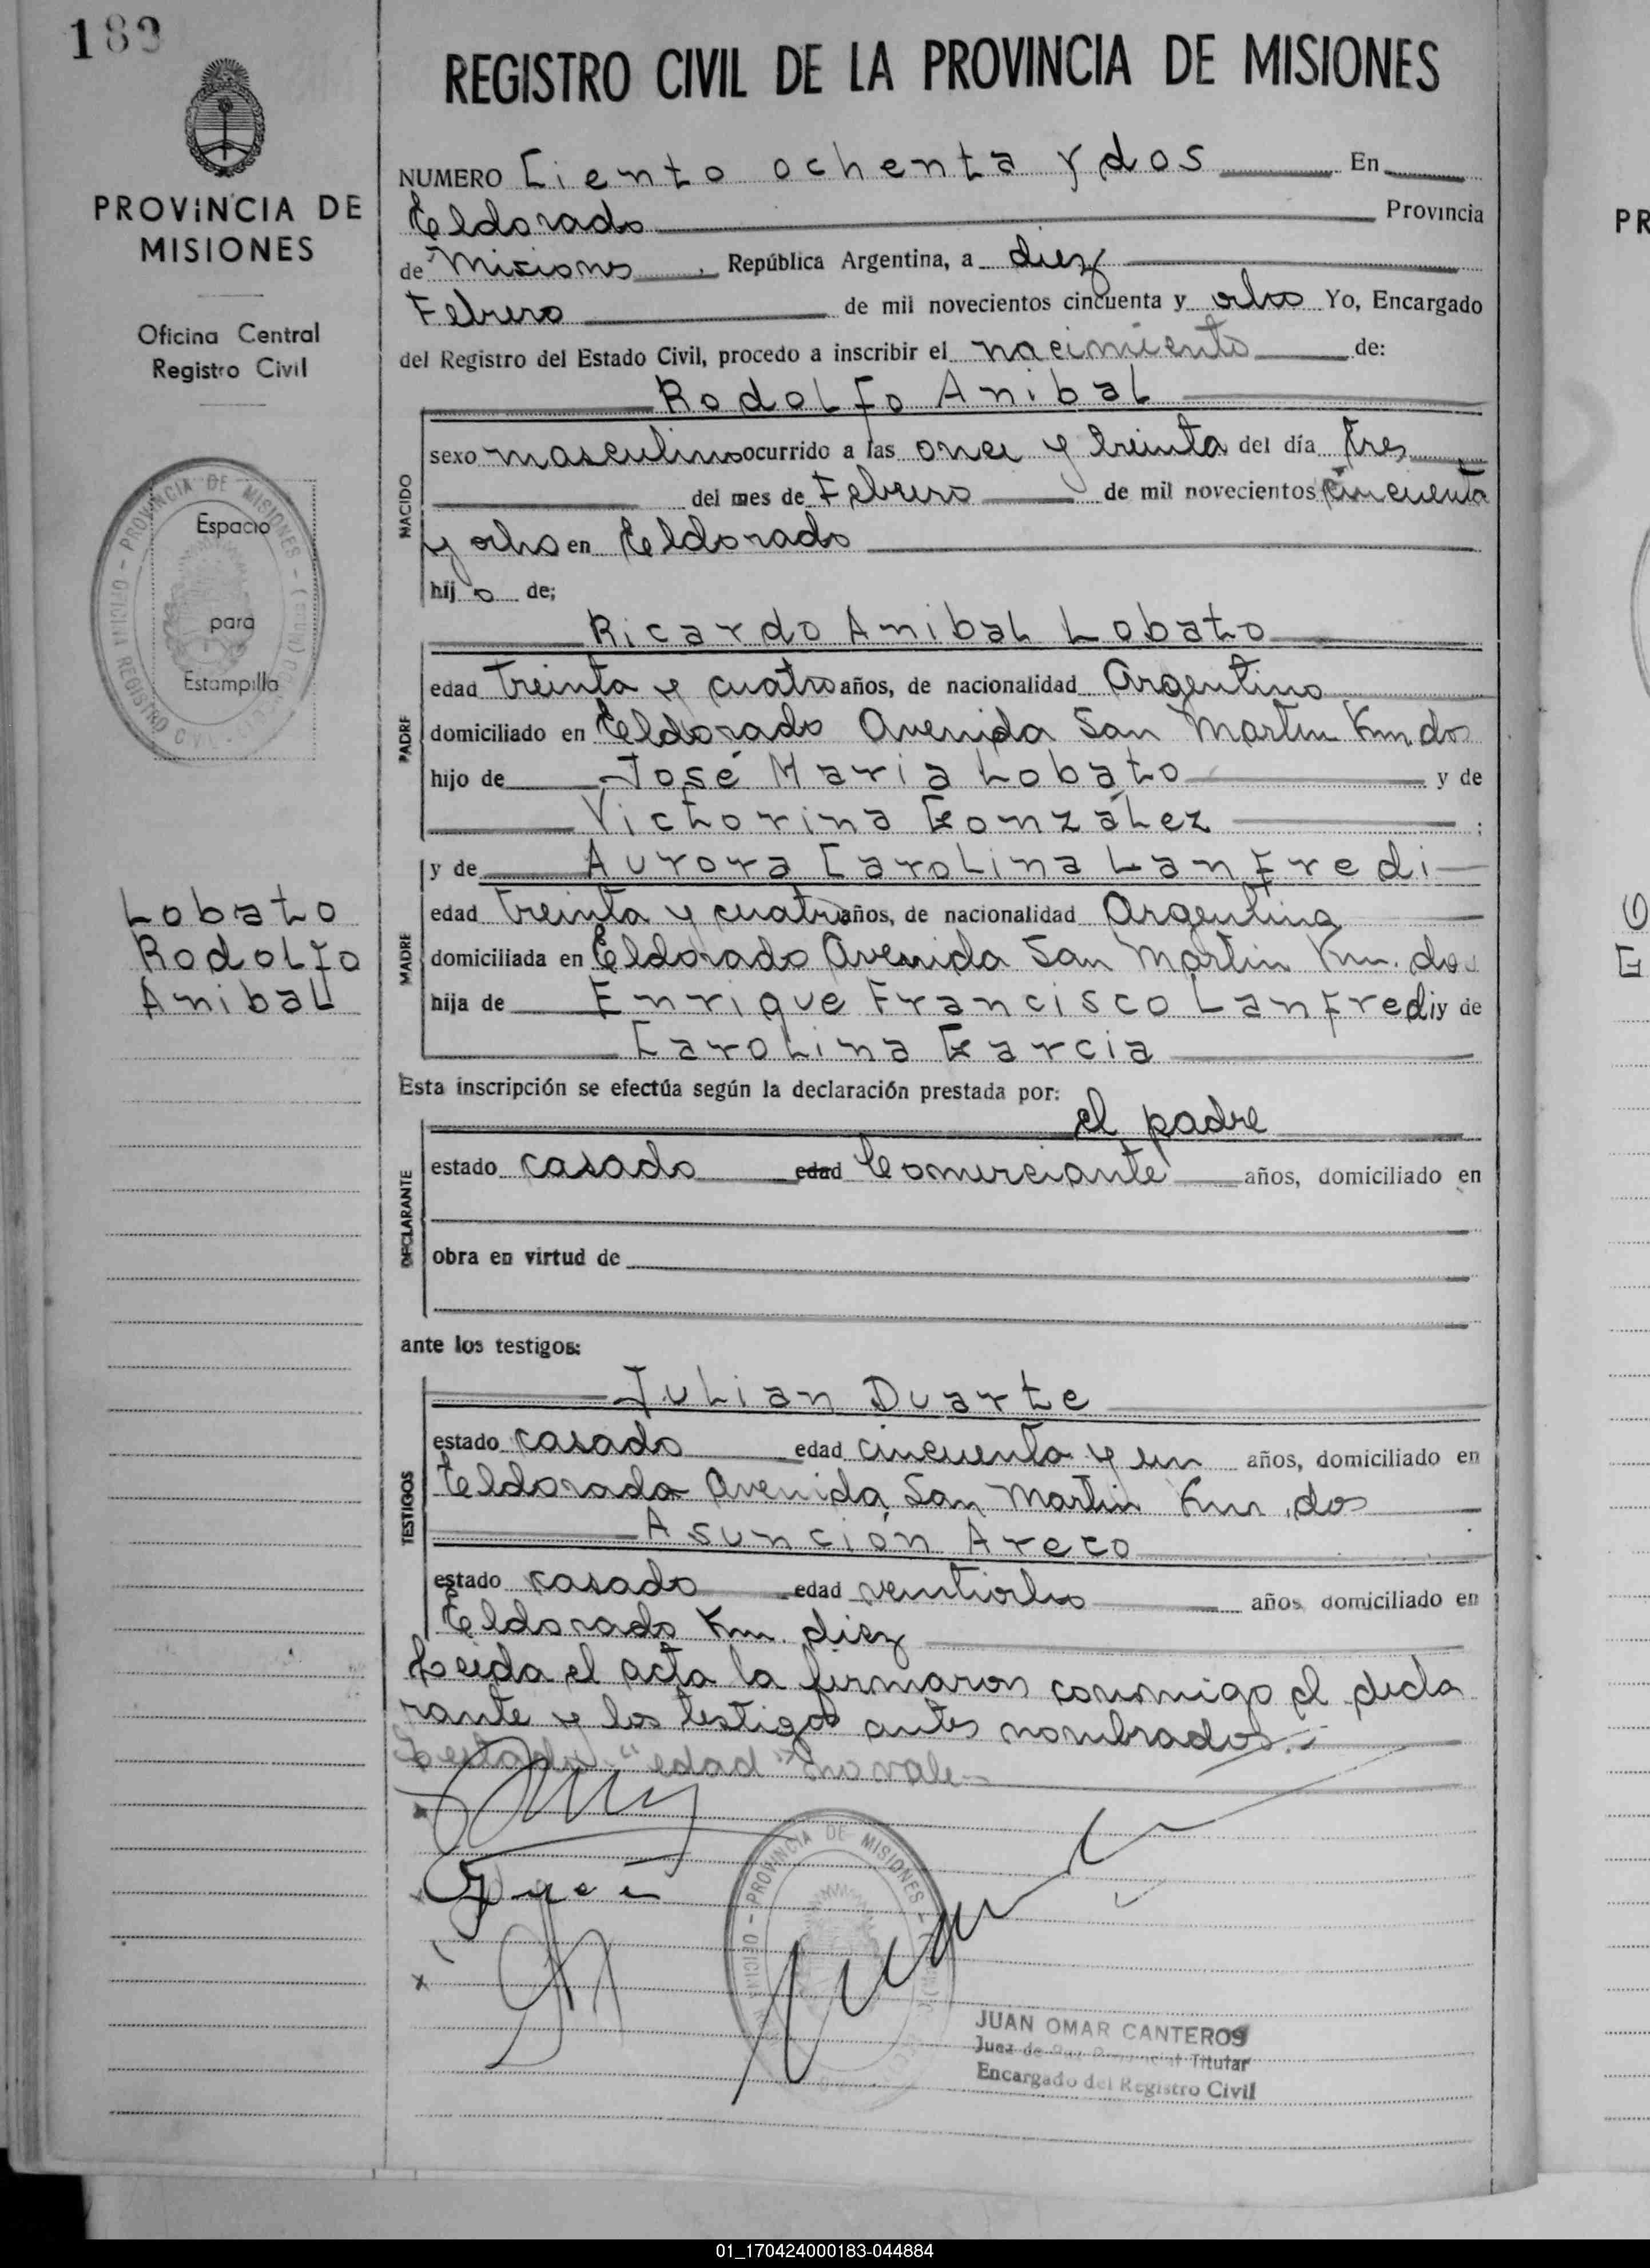 189
REGISTRO CIVIL DE LA PROVINCIA DE MISIONES
PROVINCIA DE
MISIONES
Oficina Central
Registro Civil
PROVINCIA DE MISIONES
REGISTRO CIVIL
Espacio
para
Estampilla
Lobato
Rodolfo
Anibal
NUMERO Ciento ochenta y dos En
Eldorado Provincia
de Misiones, República Argentina, a diez
Febrero de mil novecientos cincuenta y ocho Yo, Encargado
del Registro del Estado Civil, procedo a inscribir el nacimiento de:
Rodolfo Anibal
NACIDO
sexo masculino ocurrido a las once y treinta del día tres
del mes de Febrero de mil novecientos cincuenta
y ocho en Eldorado
hijo de;
Ricardo Anibal Lobato
PADRE
edad treinta y cuatro años, de nacionalidad Argentino
domiciliado en Eldorado Avenida San Martin Km. dos
hijo de José Maria Lobato y de
Victorina González ;
y de Aurora Carolina Lanfredi
MADRE
edad treinta y cuatro años, de nacionalidad Argentina
domiciliada en Eldorado Avenida San Martin Km. dos
hija de Enrique Francisco Lanfredi y de
Carolina Garcia
Esta inscripción se efectúa según la declaración prestada por:
el padre
DECLARANTE
estado casado edad Comerciante años, domiciliado en
obra en virtud de
ante los testigos:
Julian Duarte
TESTIGOS
estado casado edad cincuenta y un años, domiciliado en
Eldorado Avenida San Martin Km. dos
Asunción Areco
estado casado edad veintiocho años domiciliado en
Eldorado Km. diez
Leida el acta la firmaron conmigo el decla
rante y los testigos antes nombrados.-
Testado: "edad" no vale-
PROVINCIA DE MISIONES
JUAN OMAR CANTEROS
Juez de Paz Titular
Encargado del Registro Civil
PR
01_170424000183-044884